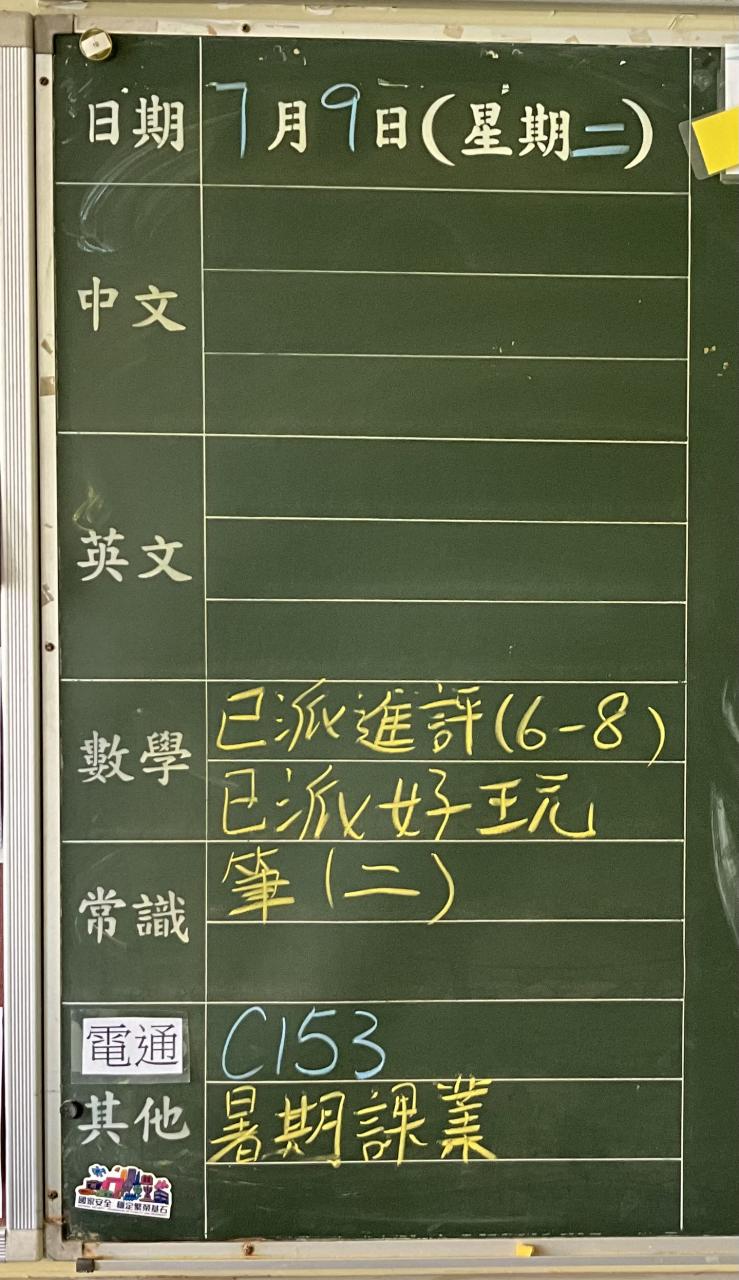 日期 7月9日(星期二)
中文
英文
數學 已派進評(6-8)
已派好玩
常識 筆(二)
電通 C153
其他 暑期課業
國家安全 穩定繁榮基石